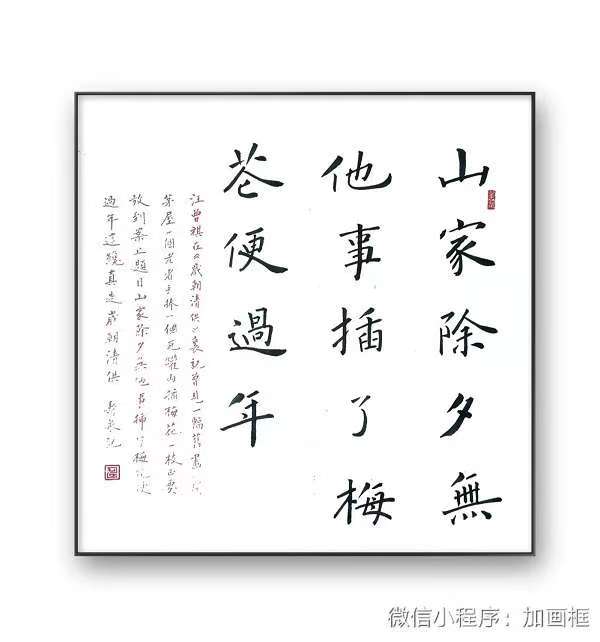 山家除夕無
他事插了梅
花便過年
汪曾祺在《歲朝清供》裏記曾見一幅舊畫一間
茅屋一個老者手捧一個瓦罐內插梅花一枝正要
放到案上題曰山家除夕無他事插了梅花便
過年這纔真是歲朝清供
微信小程序：加画框